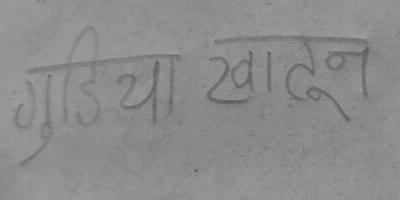 गुडिया खातून